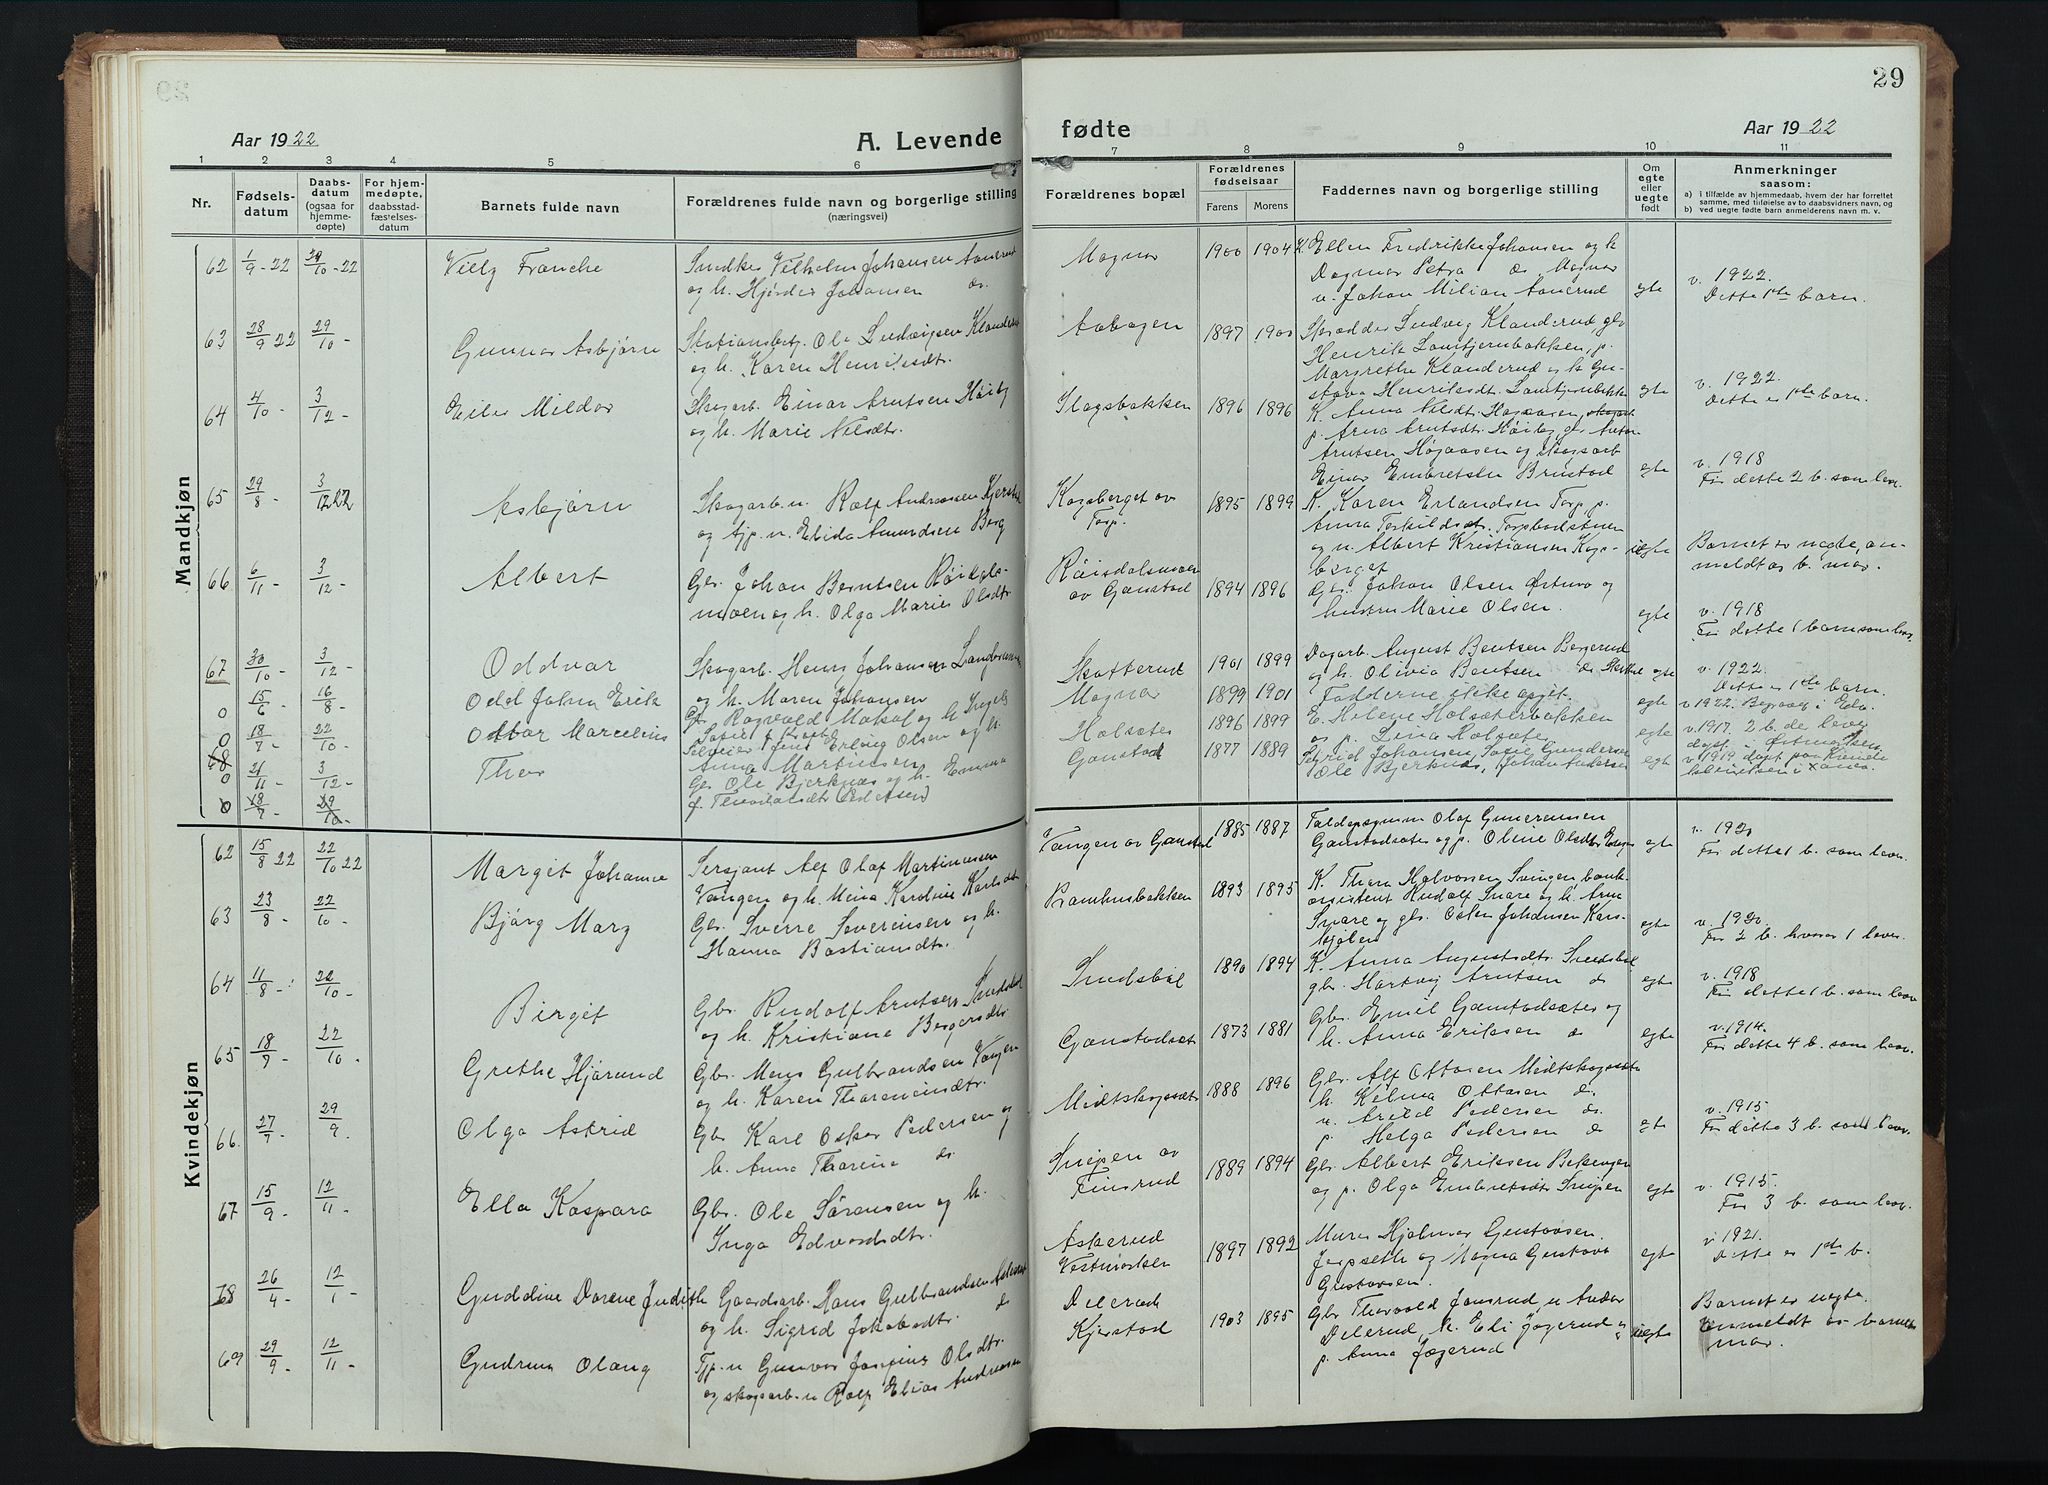 29
Aar 1922
A. Levende
fødte
Aar 1922
1 2 3 4 5 6 7 8 9 10 11
Nr.
Fødsels-
datum
Daabs-
datum
(ogsaa for
hjemme-
døpte)
For hjem-
medøpte,
daabsstad-
fæstelses-
datum
Barnets fulde navn
Forældrenes fulde navn og borgerlige stilling
(næringsvei)
Forældrenes bopæl
Forældrenes
fødselsaar
Farens Morens
Faddernes navn og borgerlige stilling
Om
egte
eller
uegte
født
Anmerkninger
saasom:
a) i tilfælde av hjemmedaab, hvem der har forrettet
samme, med tilføielse av to daabsvidners navn, og
b) ved uegte fødte barn anmelderens navn m. v.
Mandkjøn
62 1/9-22 /10-22 Villy Franche Snedker Vilhelm Johansen Aanerud
og h. Hjørdis Johansen ds.
Magnor 1900 1904 K. Ellen Fredrikke Johansen og h
Dagmar Petra ds Magnor
u. Johan Milian Aanerud egte v. 1922.
Dette 1ste barn.
63 28/9 22 29/10- Gunnar Asbjørn Stationsbetj. Ole Ludvigsen Klanderud
og h. Karen Henriksdt.
Aabogen 1897 1900 Skrædder Ludvig Klanderud, gbr
Henrik Lamtjernbakken, p.
Margrethe Klanderud og h Gu-
stava Henriksdt. Lamtjernbakke egte v. 1922.
Dette er 1ste barn.
64 4/10- 3/12- Eiler Mildor Skogarb. Einar Arntsen Høiby
og h. Marie Nilsdt.
Slagsbakken 1896 1896 K. Anna Nilsdt. Høgaasen,
p. Arna Arntsdt. Høiby, gbr Anton
Arntsen Høgaasen og skogsarb
Einar Embretsen Brustad egte v. 1918
Før dette 2 b. som lever.
65 29/8 3/12 22 Asbjørn Skogarb. u. Rolf Andreassen Kjerstad
og tjp. u. Elida Amundsen Berg
Kogsberget av
Torp. 1895 1899 K. Karen Erlandsen Torp, p.
Anna Terkildsdt. Torpbadstuen
og u. Albert Kristiansen Kogs-
berget uegte Barnet er uegte, an-
meldt av b. mor.
66 6/11- 3/12- Albert Gbr. Johan Berntsen Røisdals-
moen og h. Olga Marie Olsdtr
Røisdalsmoen
av Gaustad 1894 1896 Gbr. Johan Olsen Østmo og
hustru Marie Olsen. egte v. 1918
Før dette 1 barn som lever.
67 30/10- 3/12- Oddvar Skogarb. Henry Johansen
og h. Maren Johansen
Skotterud 1901 1899 Dagarb. August Bentsen Bergerud
og h. Olivia Bentsen ds egte v. 1922.
Dette er 1ste barn.
0 15/6 16/8- Odd John Erik Ragvald
Magnor 1899 1901 Fadderne ikke opgit. egte v 1922.
0 18/7- 22/10- Ottar Marcelius Jens Erling Olsen og h
Anna Martinsen
Holsæter 1896 1899 E. Helene Holsæterbakken
og p. Lina Holsæter egte v. 1917. 2 b. de lever
døpt i Østmarken
68
0 21/11- 3/12- Thor Gbr Ole Bjerknæs og h. Emma
Gaustad 1877 1889 Sigrid Johansen, Sofie Gundersen
Ole Bjerknæs, Johan Andersen egte v 1919 døpt paa Kvinde
klinikken i
0 18/7- 29/10-
Kvindekjøn
62 15/8 22 22/10 22 Margit Johanne Sersjant Alf Olaf Martinussen
Vangen og h. Mina Karoline Karlsdt
Vangen av Gaustad 1885 1887 Olaf Gunerussen
Gaustadsæter og p. Oline Olsdtr egte v. 1920
Før dette 1 b. som lever.
63 23/8- 22/10- Bjørg Mary Gbr. Sverre Severinsen og h.
Hanna Bastiansdt.
1893 1895 K. Thora Halvorsen Svingen bank-
assistent Rudolf Snare og h. Arna
Snare og gbr. Osten Johansen Kars-
hjølen egte v. 1920
Før 2 b. hvorav 1 lever.
64 11/8- 22/10- Birgit Gbr. Rudolf Arntsen Snedsbøl
og h. Kristiane Bergersdt.
Snedsbøl 1890 1894 K. Anna Augustsdt. Snedsbøl
gbr. Hartvig Arntsen ds egte v. 1918
Før dette 1 b. som lever
65 18/9- 22/10- Grethe Hjørund Gbr. Mons Gulbrandsen Vangen
og h. Karen Thorensdt.
Gaustadsæt 1873 1881 Gbr. Emil Gaustadsæter og
h. Anna Eriksen ds egte v. 1914.
Før dette 4 b. som lever.
66 27/7- 29/9. Olga Astrid Gbr Karl Oskar Pedersen og
h. Anna Thorina ds.
Midtskogsæt 1888 1896 Gbr. Alf Ottosen Midtskogsæter
h. Helma Ottosen ds.
u. Arild Pedersen ds.
p. Helga Pedersen ds egte v. 1915
Før dette 3 b. som lever.
67 15/9- 12/11- Ella Kaspara Gbr. Ole Sørensen og h.
Inga Edvardsdt.
Sneipen av
Finsrud 1889 1894 Gbr. Albert Eriksen
og p. Olga Embretsdt. Sneipen egte v. 1915.
Før 3 b. som lever.
68 26/4- 12/1- Guddine Dorene Judith Gaardsarb. Hans Gulbrandsen Askerud
og h. Sigrid Jakobsdt. ds
Askerud
Vestmarken 1897 1892 Murer Hjalmar Gustavsen.
og Magna Gustava
Gustavsen. egte v 1921.
Dette er 1ste b.
69 29/9- 12/11- Gudrun Olaug Tjp. u Gunvor Olsdtr.
og skogarb. u Rolf Elias Andreassen
Kjerstad 1903 1895 Gbr Thorvald Jansrud, u Andor
h. Eli Jøgerud og
p. Anna Jøgerud uegte Barnet er uegte
anmeldt av barnets
mor.